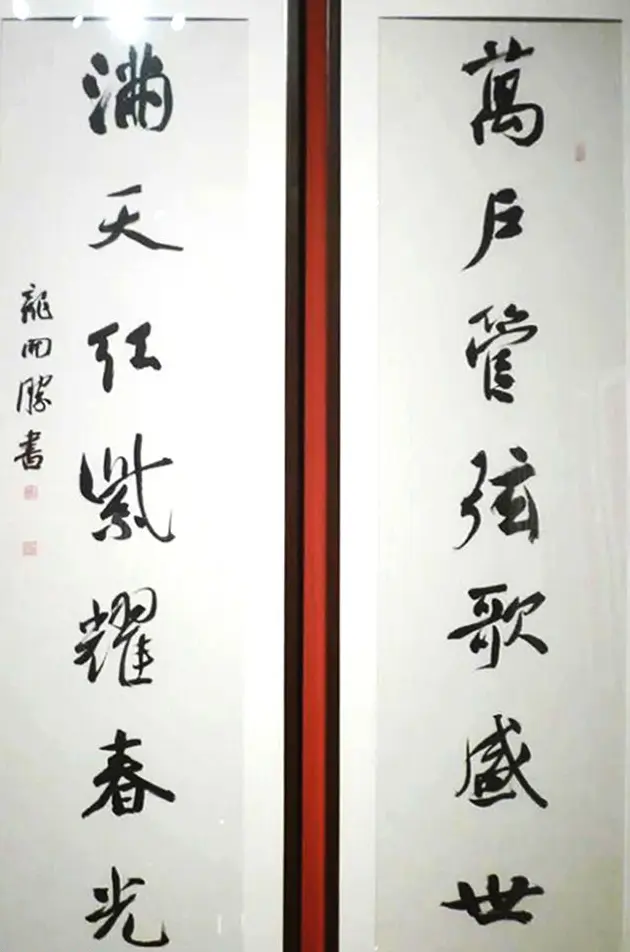 萬戶管弦歌盛世
滿天紅紫耀春光
龍開勝書